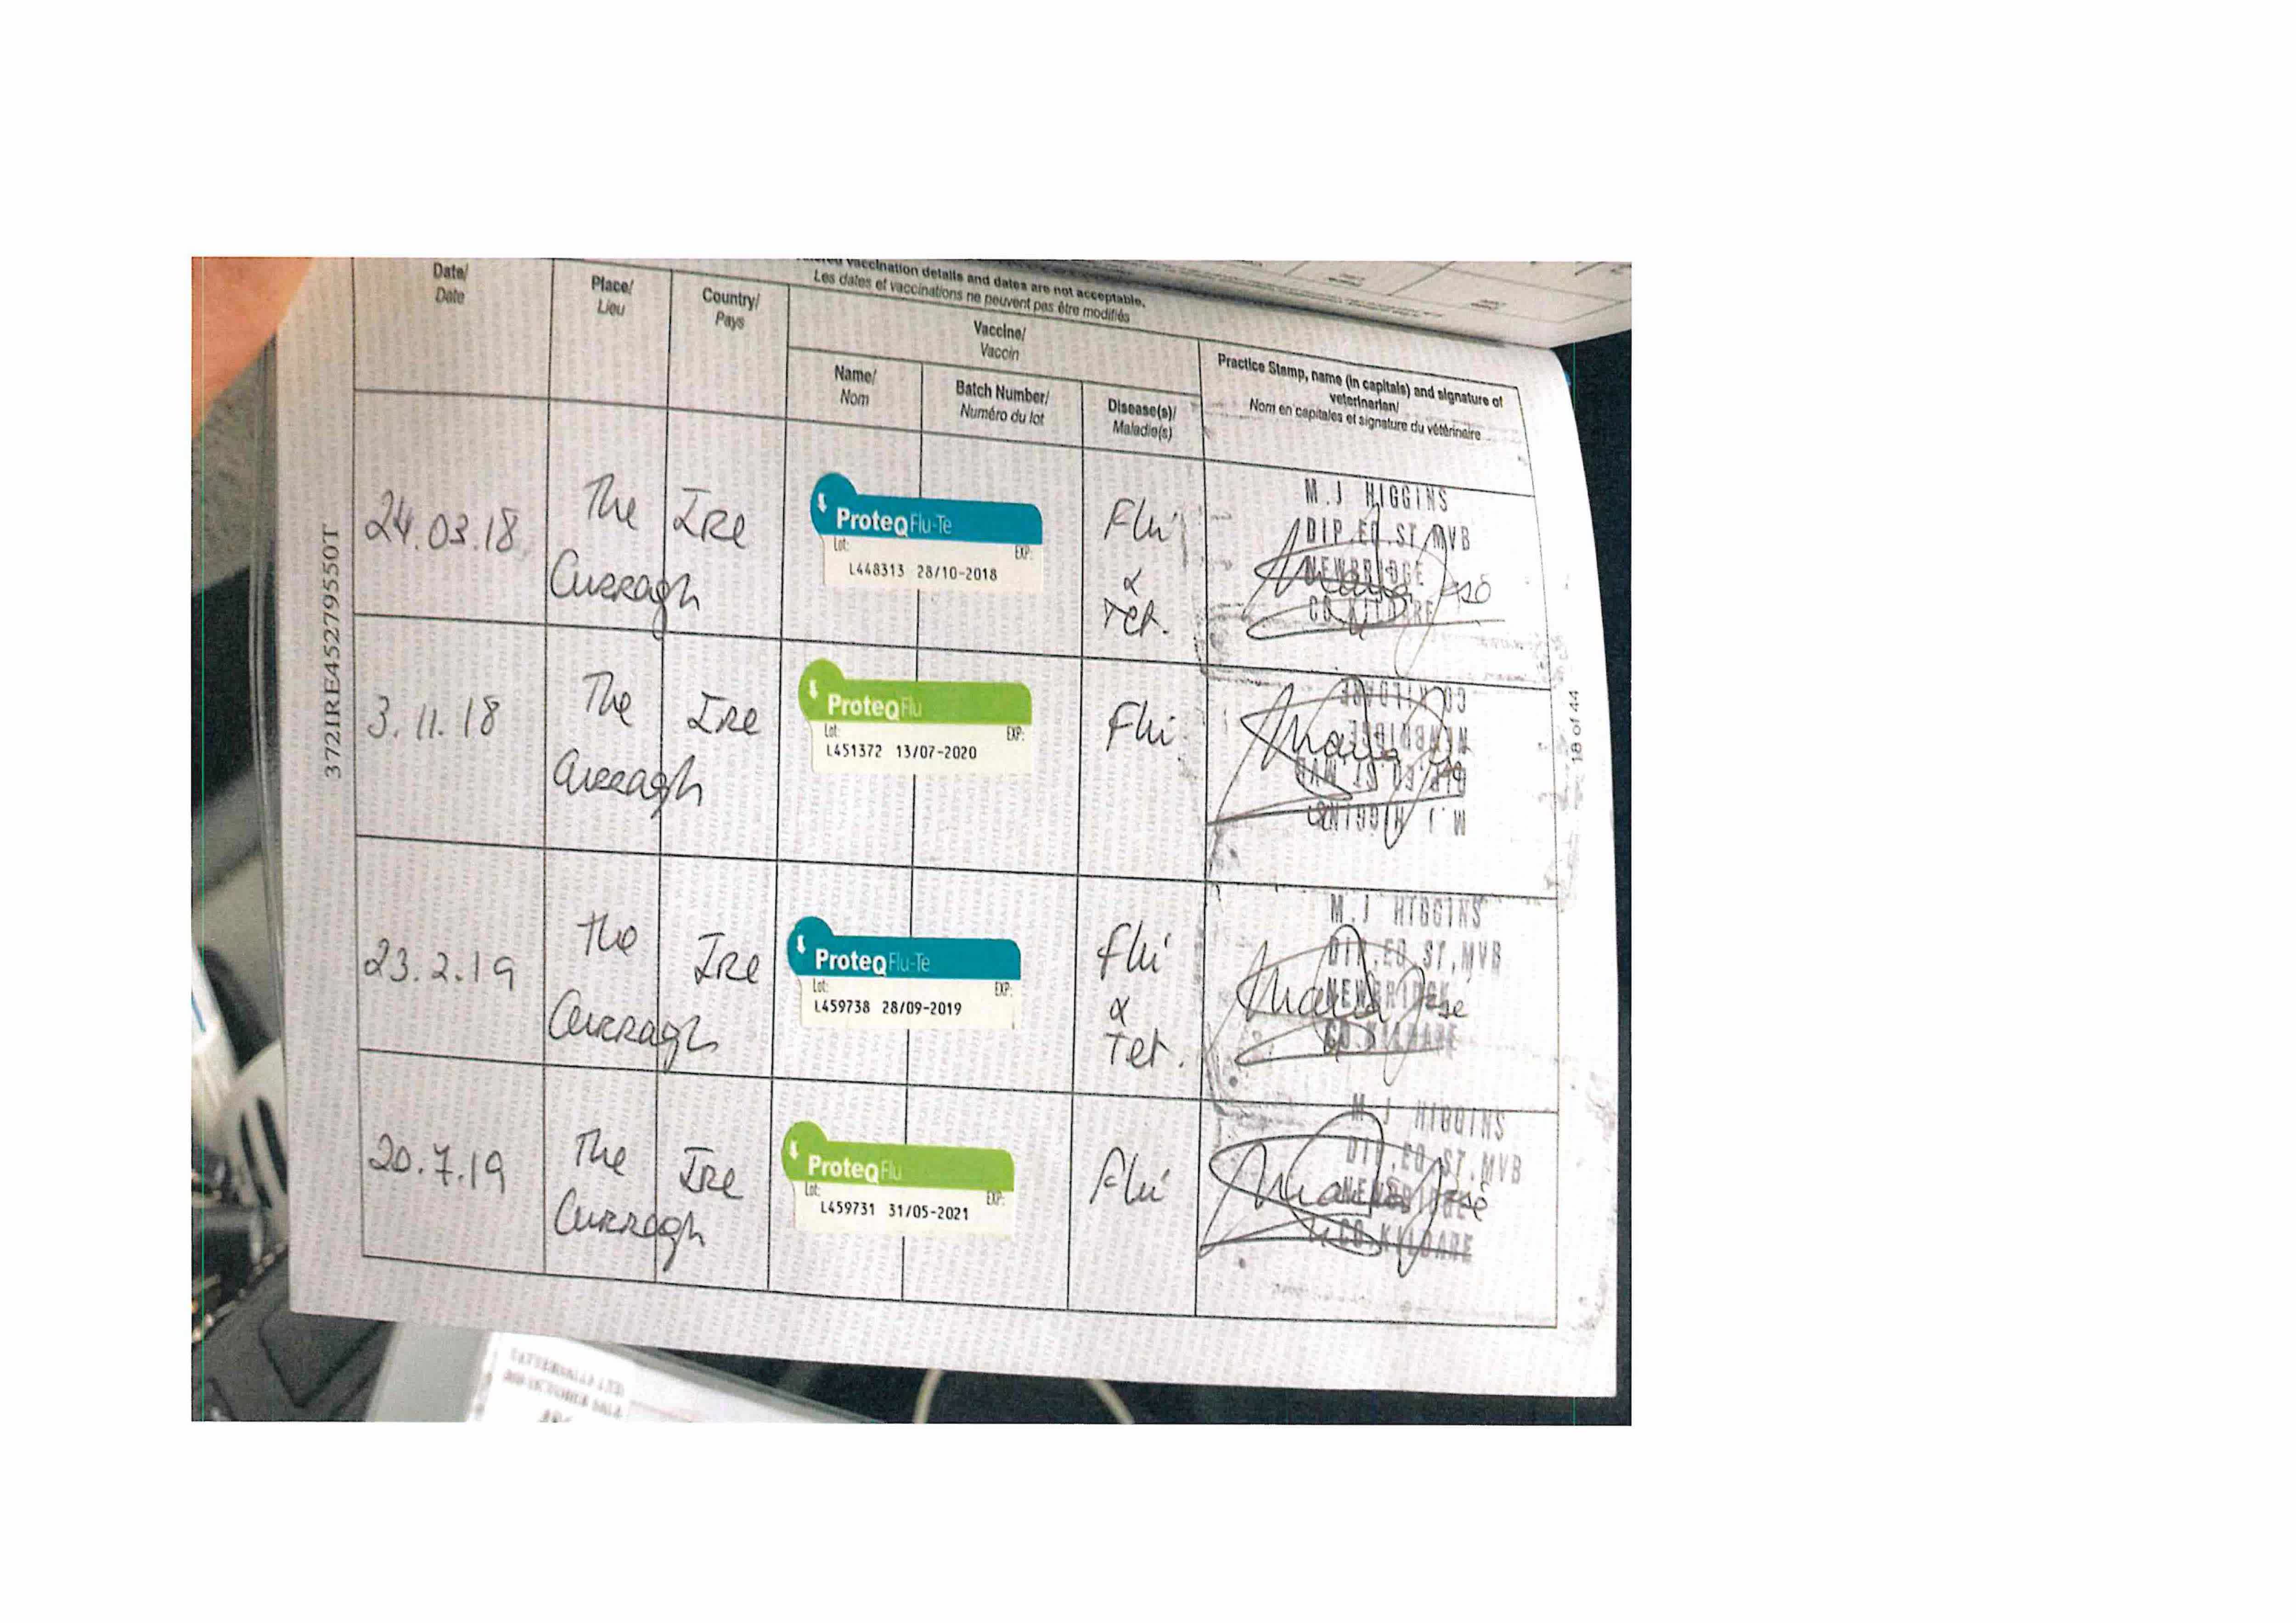 vaccination details and dates are not acceptable.
Les dates et vaccinations ne peuvent pas être modifiés
Date/
Date
Place/
Lieu
Country/
Pays
Vaccine/
Vaccin
Name/
Nom
Batch Number/
Numéro du lot
Disease(s)/
Maladie(s)
Practice Stamp, name (in capitals) and signature of
veterinarian/
Nom en capitales et signature du vétérinaire
24.03.18
The
Curragh
Ire
ProteqFlu-Te
Lot: EXP:
L448313 28/10-2018
Flu
&
Tet.
M.J HIGGINS
DIP.EQ.ST,MVB
NEWBRIDGE
CO.KILDARE
3.11.18
The
Curragh
Ire
ProteqFlu
Lot: EXP:
L451372 13/07-2020
Flu
M.J HIGGINS
DIP.EQ.ST,MVB
NEWBRIDGE
CO.KILDARE
23.2.19
The
Curragh
Ire
ProteqFlu-Te
Lot: EXP:
L459738 28/09-2019
Flu
&
Tet.
M.J HIGGINS
DIP.EQ.ST,MVB
NEWBRIDGE
CO.KILDARE
20.7.19
The
Curragh
Ire
ProteqFlu
Lot: EXP:
L459731 31/05-2021
Flu
M.J HIGGINS
DIP.EQ.ST,MVB
NEWBRIDGE
CO.KILDARE
372IRE45279550T
18 of 44
TATTERSALLS LTD